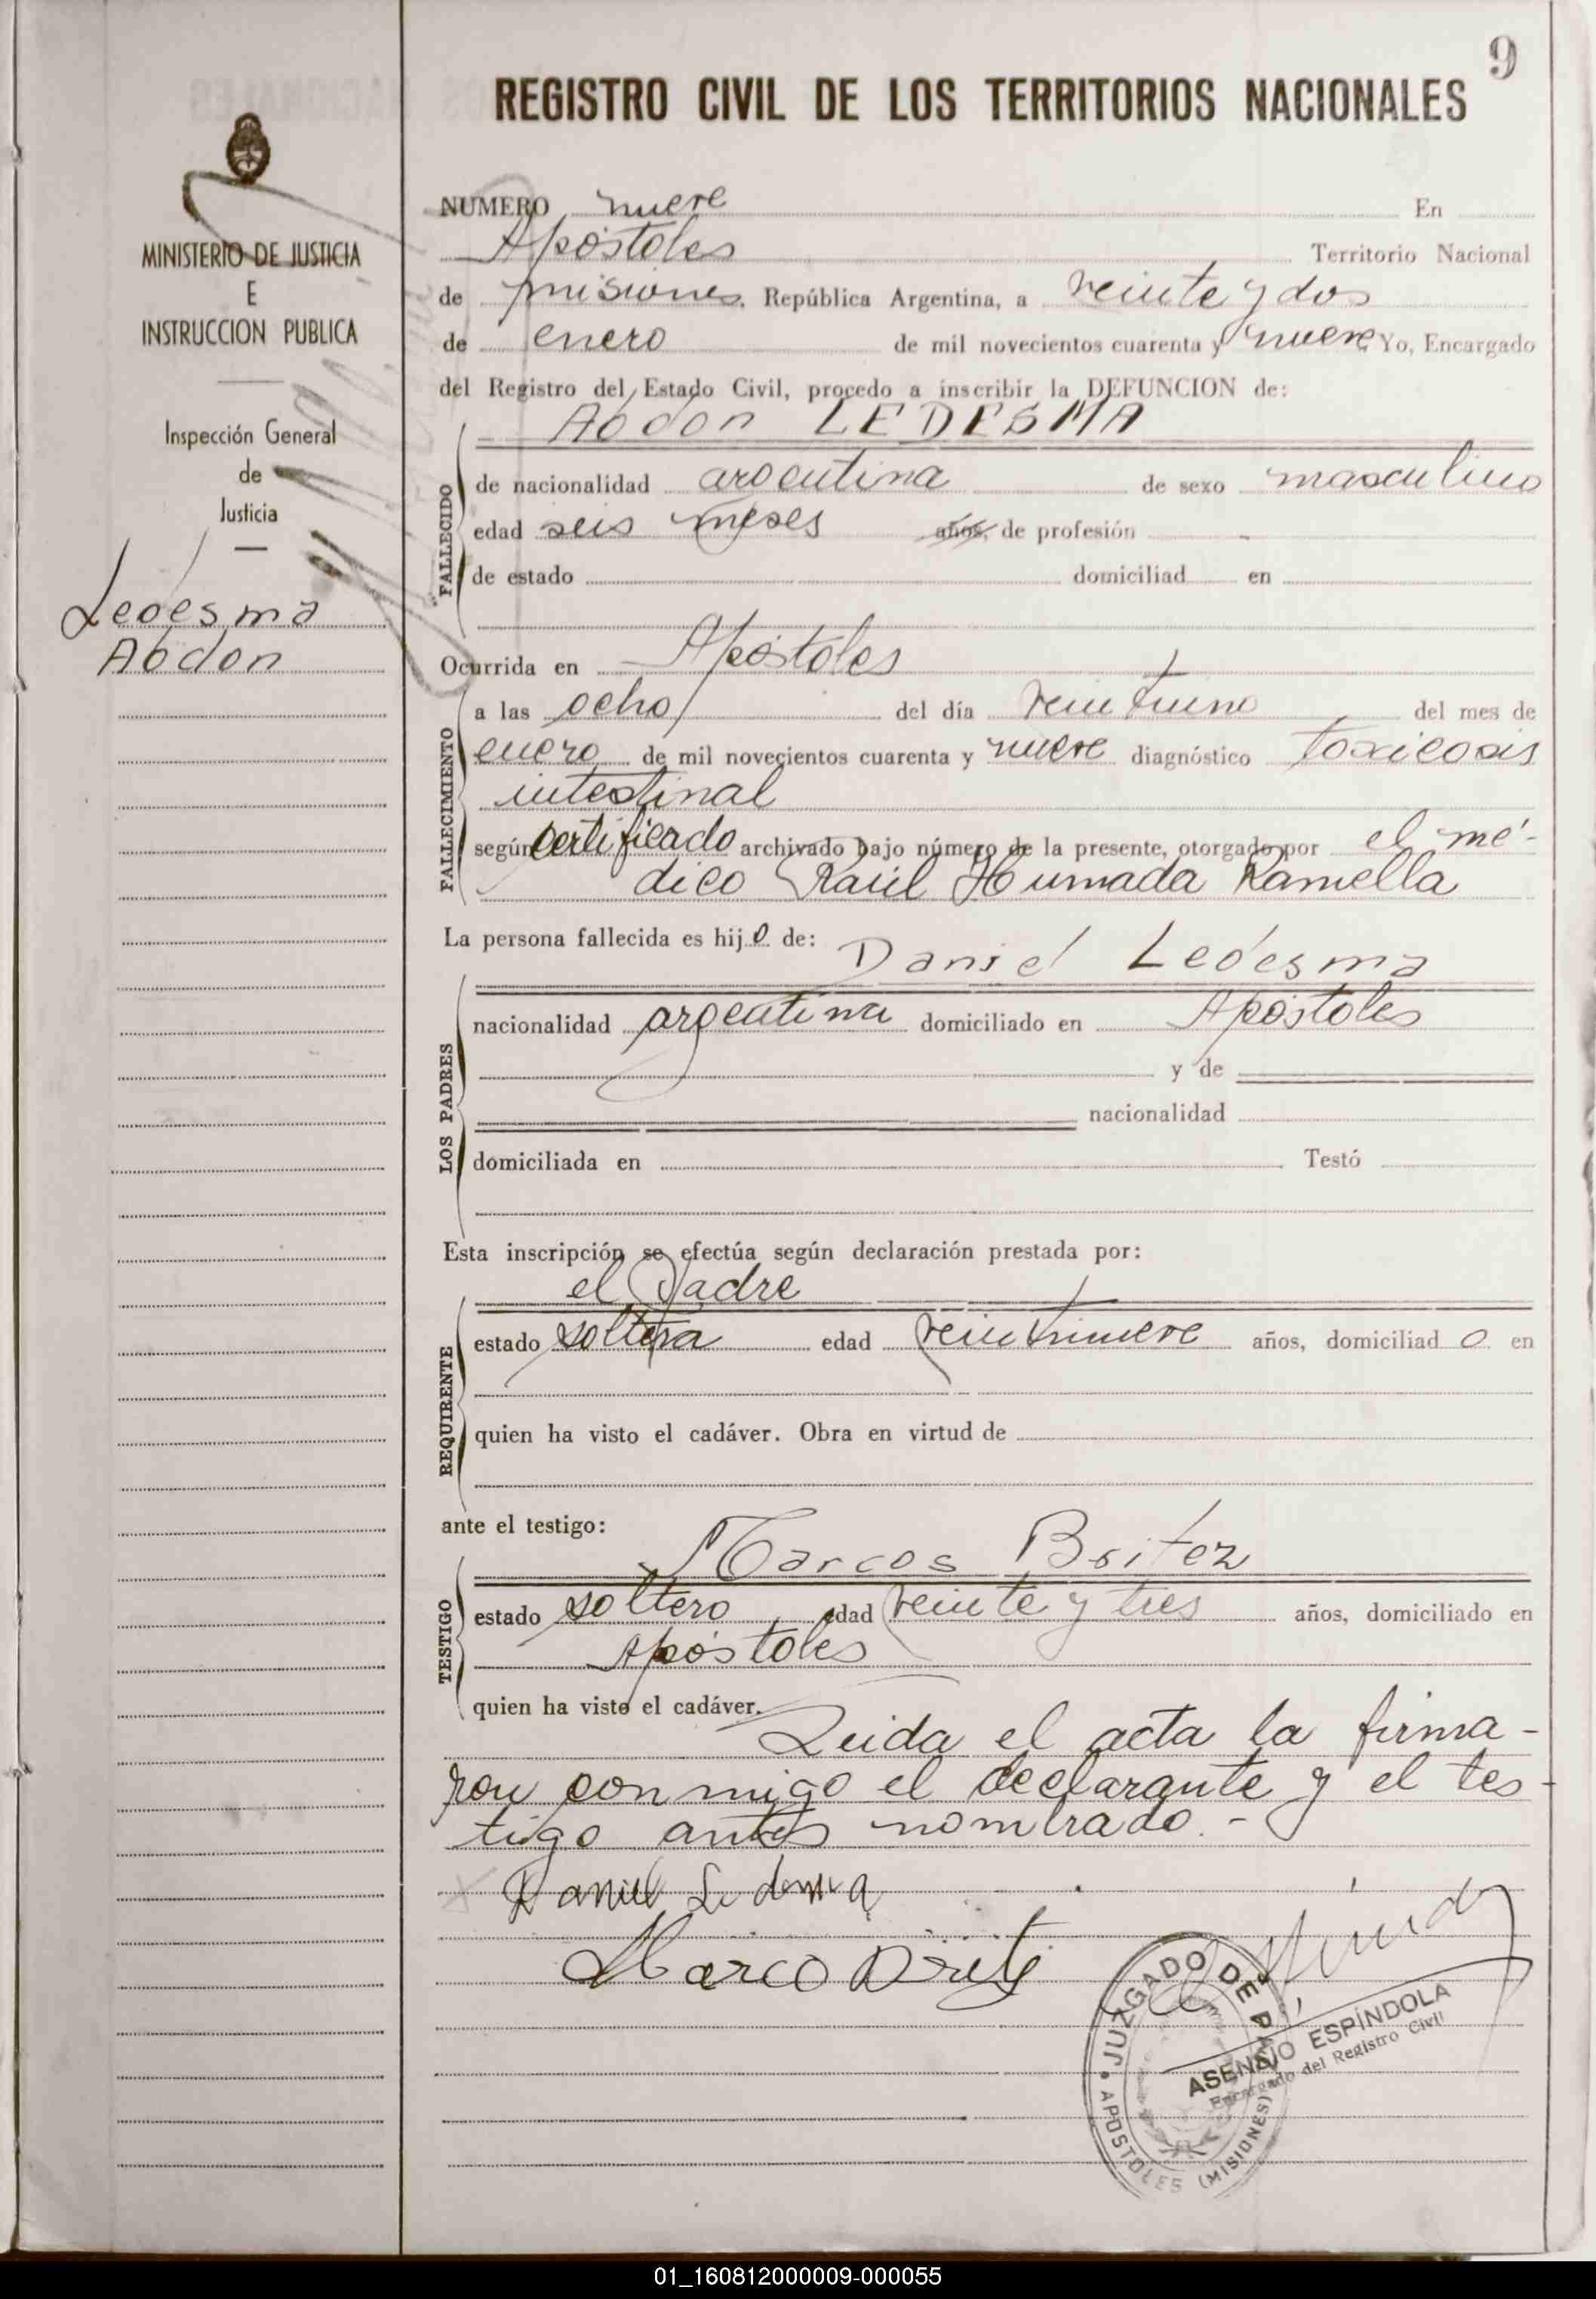 9
REGISTRO CIVIL DE LOS TERRITORIOS NACIONALES
MINISTERIO DE JUSTICIA
E
INSTRUCCION PUBLICA
Inspección General
de
Justicia
Ledesma
Abdon
NUMERO nueve En
Apóstoles Territorio Nacional
de misiones, República Argentina, a veinte y dos
de enero de mil novecientos cuarenta y nueve Yo, Encargado
del Registro del Estado Civil, procedo a inscribir la DEFUNCION de:
Abdon LEDESMA
FALLECIDO
de nacionalidad argentina de sexo masculino
edad seis meses años, de profesión -
de estado domiciliad en
Ocurrida en Apóstoles
FALLECIMIENTO
a las ocho del día veintiuno del mes de
enero de mil novecientos cuarenta y nueve diagnóstico toxicosis
intestinal
según certificado archivado bajo número de la presente, otorgado por el mé-
dico Raúl Humada Ramella
La persona fallecida es hijo de:
Daniel Ledesma
LOS PADRES
nacionalidad argentina domiciliado en Apóstoles
y de
nacionalidad
domiciliada en Testó
Esta inscripción se efectúa según declaración prestada por:
el Padre
REQUIRENTE
estado soltera edad veintinueve años, domiciliado en
quien ha visto el cadáver. Obra en virtud de
ante el testigo:
Marcos Britez
TESTIGO
estado soltero edad veinte y tres años, domiciliado en
Apóstoles
quien ha visto el cadáver.
Leida el acta la firma-
ron conmigo el declarante y el tes-
tigo antes nombrado.-
Daniel Ledesma
Marco Brite
JUZGADO DE PAZ
APOSTOLES (MISIONES)
ASENSIO ESPÍNDOLA
Encargado del Registro Civil
01_160812000009-000055